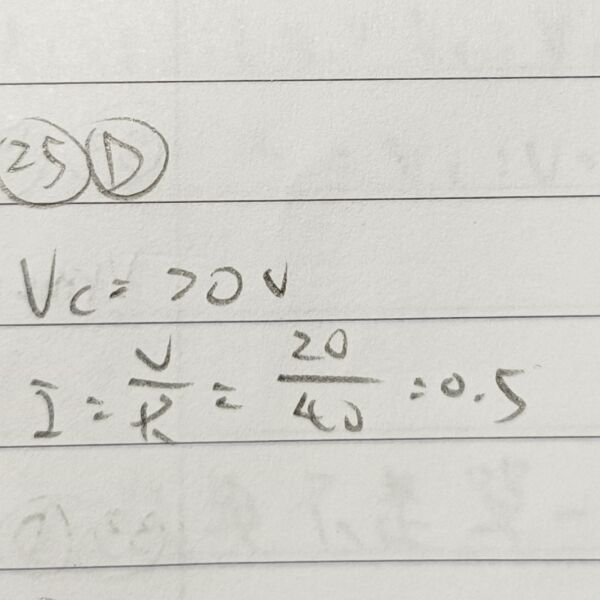 25 D
Vc = 20V
I = V/R = 20/40 = 0.5